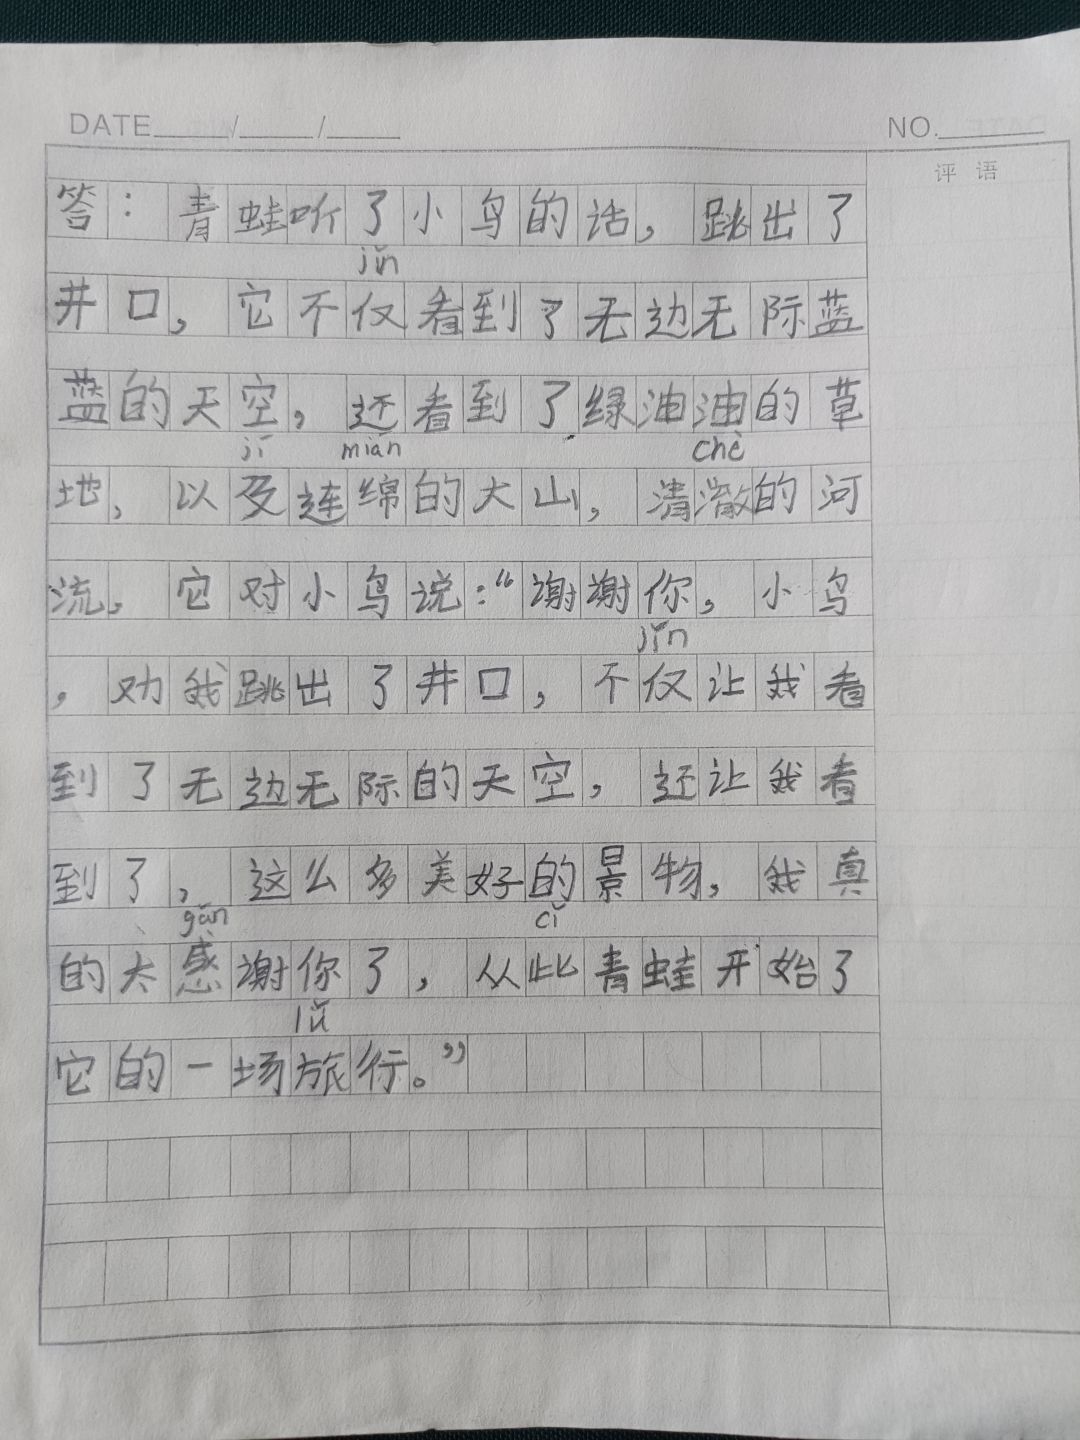 DATE____/____/____
NO.______
评 语
答：青蛙听了小鸟的话，跳出了
jǐn
井口，它不仅看到了无边无际蓝
蓝的天空，还看到了绿油油的草
jǐ mián chè
地，以及连绵的大山，清澈的河
流，它对小鸟说：“谢谢你，小鸟
jǐn
，劝我跳出了井口，不仅让我看
到了无边无际的天空，还让我看
到了，这么多美好的景物，我真
gǎn cǐ
的太感谢你了，从此青蛙开始了
lǚ
它的一场旅行。”